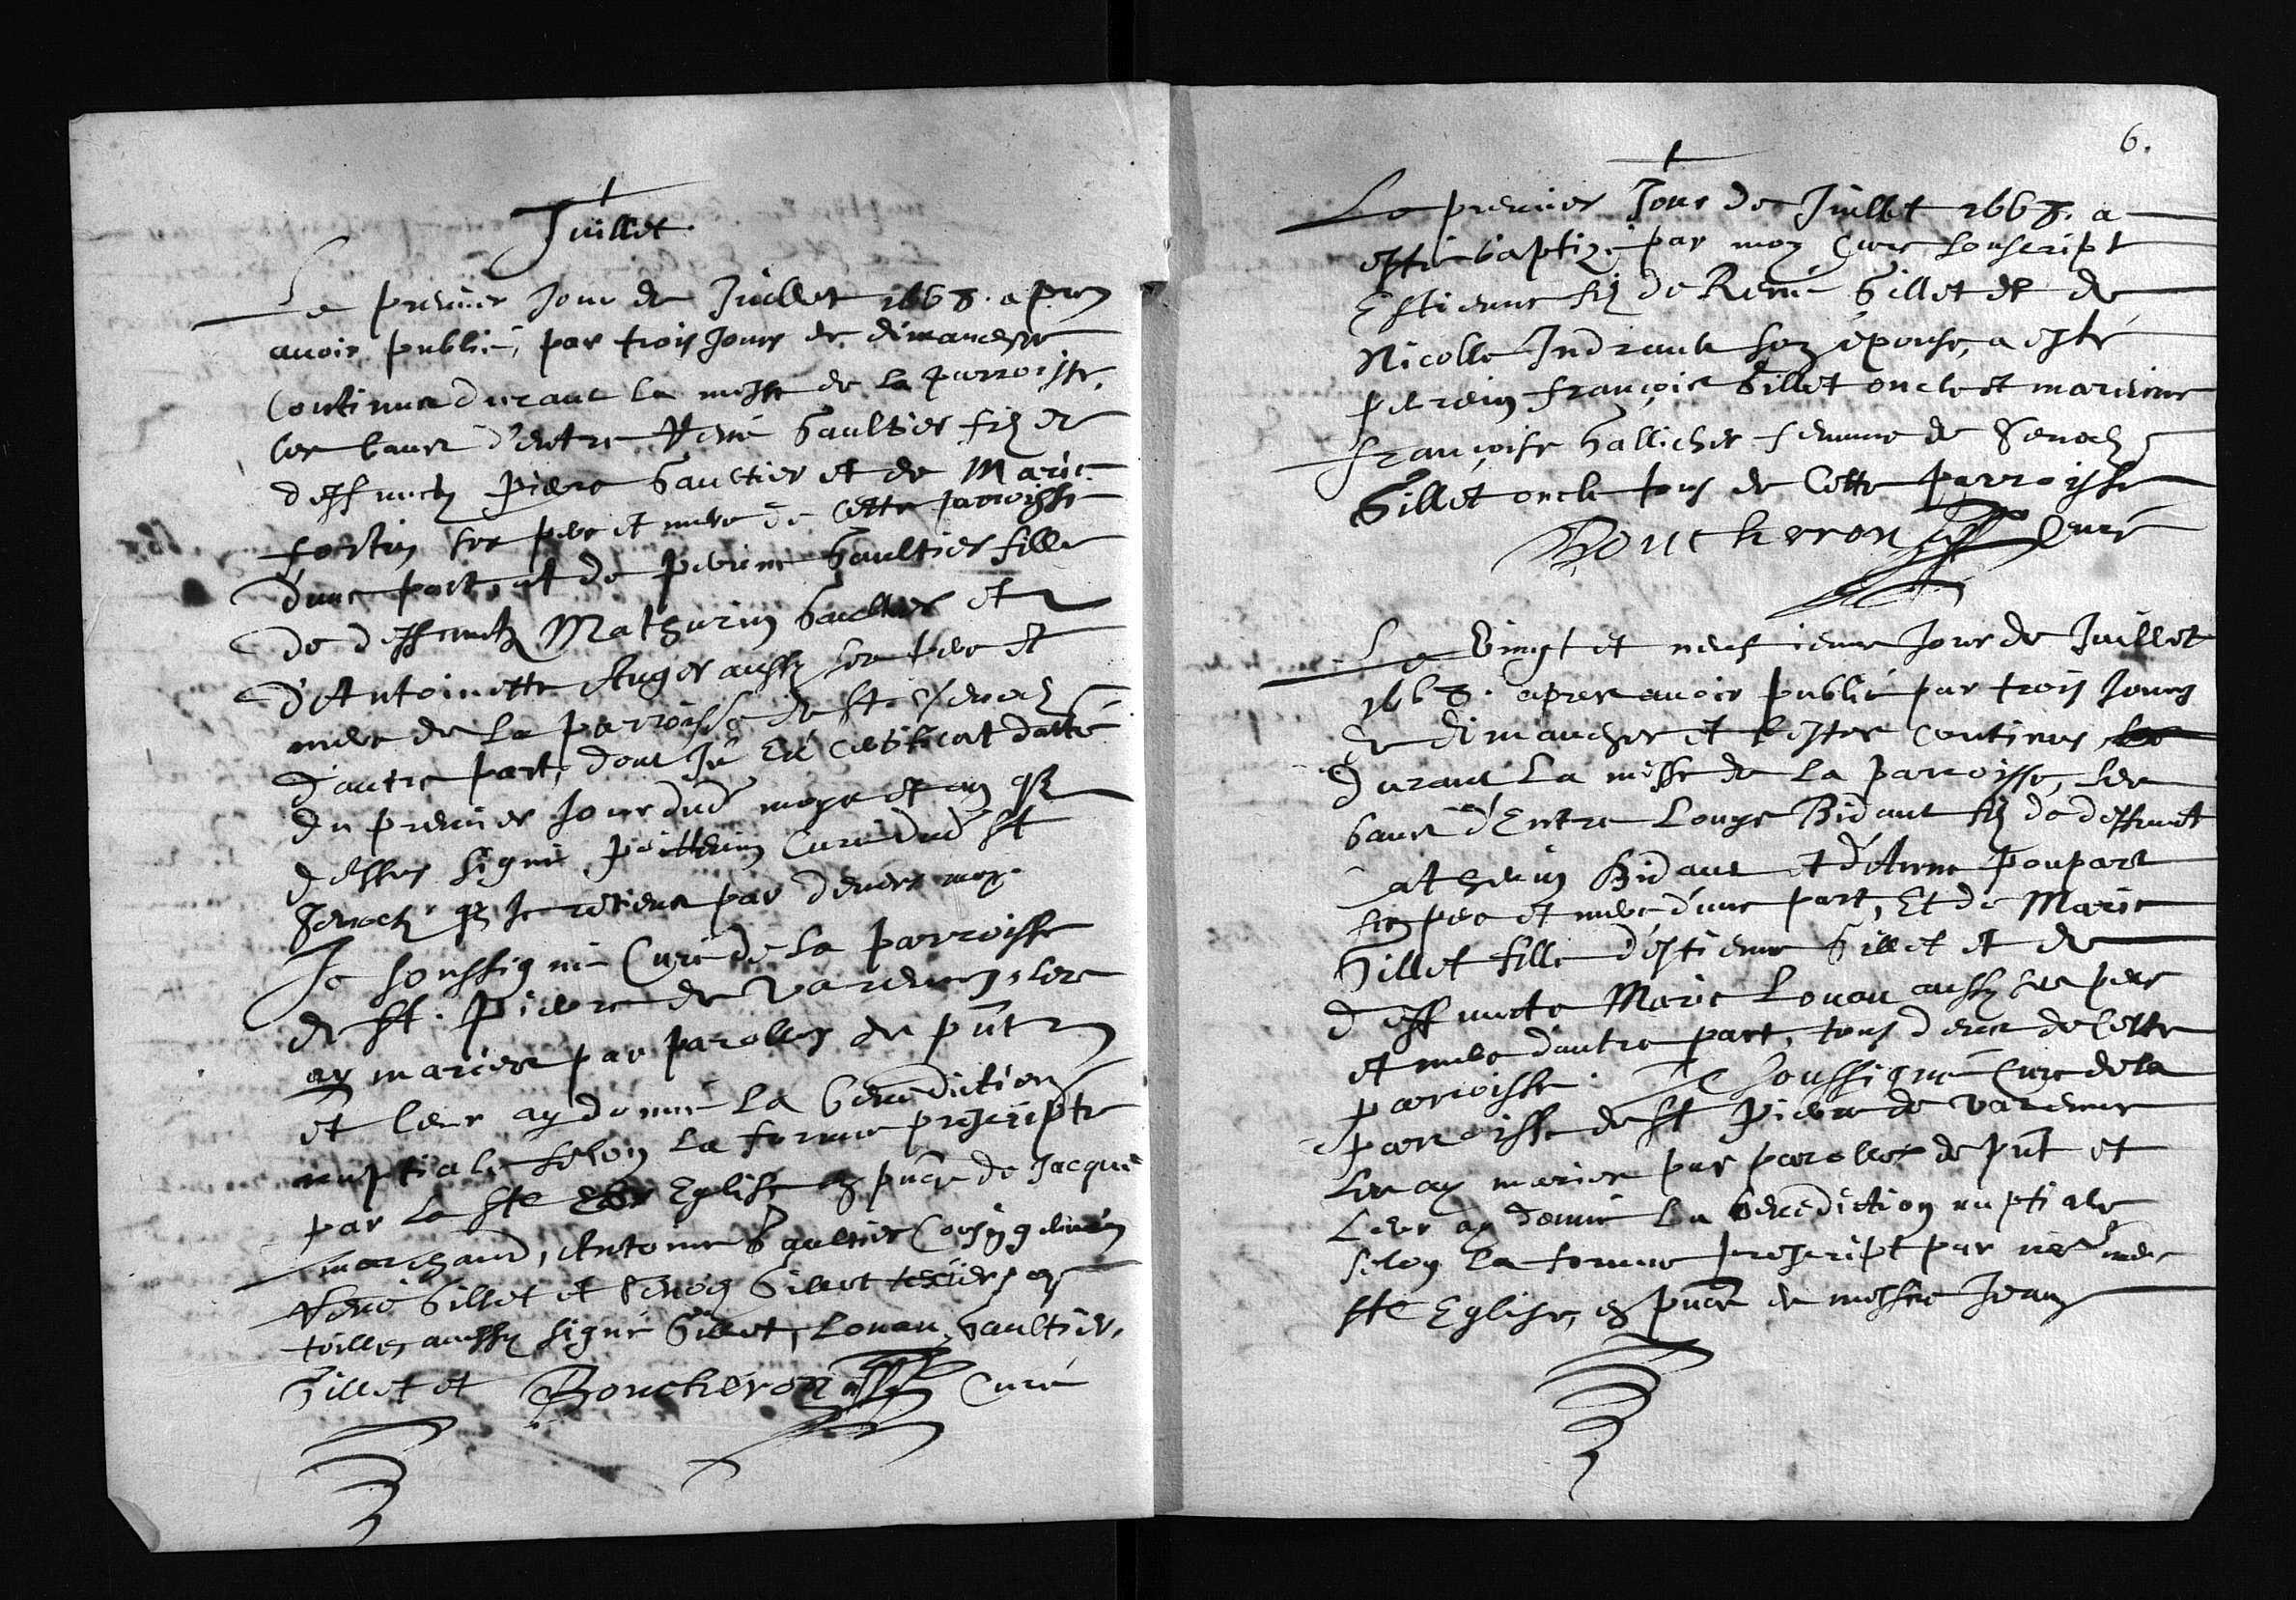 Juillet
Le premier Jour de Juillet 1668. apres
avoir publié, par trois Jours de dimanche
Continus durant la messe de la parroisse.
les bans d'entre René Gaultier filz de
deffunctz Pierre Gaultier et de Marie
fortin ses pere et mere de cette parroisse
d'une part, et de perrine Gaultier fille
de deffunctz Mathurin Gaultier et
d'Antoinette Auger aussy ses pere et
mere de la parroisse de st. Senoch
d'autre part, dont Jé certificat datté
du premier Jour dud moys et an
dessus signé curé dud st
Senoch Je retiens par devers moy.
Je soussigné Curé de la parroisse
de st. Pierre de Varennes, les
ay mariez par parolles de pnt
et leur ay donné la benediction
nuptiale selon la forme prescripte
par la ste Eglise en pnce de Jacque
marchand, Antoine Gaultier Cousin germain
René Gillet et Senoch Gillet
aussy signé Gillet, Louan, Gaultier,
Gillet et Boucheron Curé
6.
Le premier Jour de Juillet 1668. a
esté baptizé par moy Curé souscript
Estienne filz de René Gillet et de
Nicolle Indrault son épouse, a esté
perein françois Gillet oncle et mareine
françoise Gallicher femme de Senoch
Gillet oncle tous de Cette parroisse
Boucheron Curé
Le vingt et neufiesme Jour de Juillet
1668. apres avoir publié par trois Jours
de dimanches et festes continus
durant la messe de la parroisse, les
bans d'Entre Louys Bidaut filz de deffunct
Bidaut et d'Anne Poupart
ses pere et mere d'une part, Et de Marie
Gillet fille d'Estienne Gillet et de
deffuncte Marie Louau aussy ses pere
et mere d'autre part, tous deux de Cette
parroisse. Je soussigné Curé de la
parroisse de st Pierre de Varennes
les ay mariez par parolles de pnt et
leur ay donné la benediction nuptiale
selon la forme prescript par nre mere
ste Eglise, en pnce de messire Jean